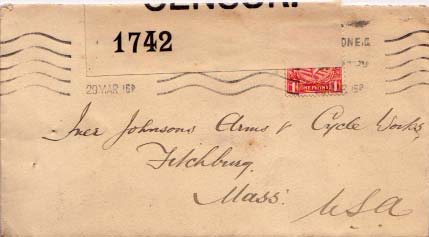 CENSOR.
1742
20 MAR 15P
ONE PENNY
Iver Johnsons Arms & Cycle Works,
Fitchburg.
Mass.
USA